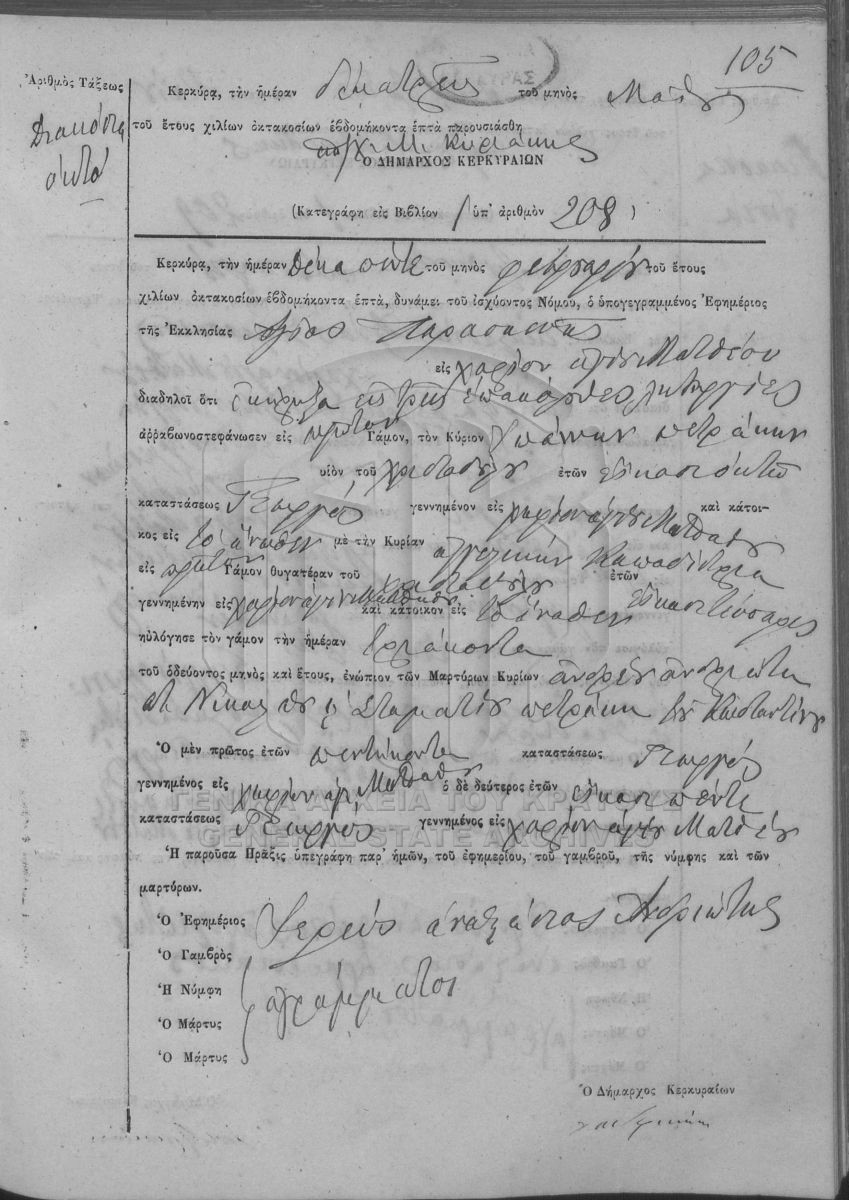 105
Ἀριθμὸς Τάξεως
Διακόσια
ὀκτώ
Κερκύρᾳ, τὴν ἡμέραν δέκα τρεῖς τοῦ μηνὸς Μαΐου
τοῦ ἔτους χιλίων ὀκτακοσίων ἑβδομήκοντα ἑπτὰ παρουσιάσθη
Ὁ ΔΗΜΑΡΧΟΣ ΚΕΡΚΥΡΑΙΩΝ
(Κατεγράφη εἰς Βιβλίον ὑπ' ἀριθμὸν 208)
Κερκύρᾳ, τὴν ἡμέραν δέκα πέντε τοῦ μηνὸς φεβρουαρίου τοῦ ἔτους
χιλίων ὀκτακοσίων ἑβδομήκοντα ἑπτά, δυνάμει τοῦ ἰσχύοντος Νόμου, ὁ ὑπογεγραμμένος Ἐφημέριος
τῆς Ἐκκλησίας Ἁγίας Παρασκευῆς
εἰς χωρίον ἁγίου Ματθέου
διαδηλοῖ ὅτι ἐκήρυξα εἰς τρεῖς
ἀῤῥαβωνοστεφάνωσεν εἰς πρῶτον Γάμον, τὸν Κύριον Ἰωάννην πετράκην
υἱὸν τοῦ ἐτῶν εἴκοσι ὀκτώ
καταστάσεως Γεωργός γεννημένον εἰς χωρίον ἁγίου Ματθαίου καὶ κάτοι-
κος εἰς τὸ ἄνωθεν μὲ τὴν Κυρίαν ἀγγελικήν Καποδίστρια
εἰς πρῶτον Γάμον θυγατέραν τοῦ ἐτῶν
γεννημένην εἰς χωρίον ἁγίου Ματθαίου καὶ κάτοικον εἰς τὸ ἄνωθεν εἴκοσι τέσσαρες
ηὐλόγησε τὸν γάμον τὴν ἡμέραν τριάκοντα
τοῦ ὁδεύοντος μηνὸς καὶ ἔτους, ἐνώπιον τῶν Μαρτύρων Κυρίων ἀνδρέου ἀνδριώτη
Σταματίου πετράκη τοῦ Κωσταντίνου
Ὁ μὲν πρῶτος ἐτῶν πεντήκοντα καταστάσεως Γεωργός
γεννημένος εἰς χωρίον ἁγ. Ματθαίου ὁ δὲ δεύτερος ἐτῶν εἴκοσι πέντε
καταστάσεως Γεωργός γεννημένος εἰς χωρίον ἁγίου Ματθέου
Ἡ παροῦσα Πρᾶξις ὑπεγράφη παρ' ἡμῶν, τοῦ ἐφημερίου, τοῦ γαμβροῦ, τῆς νύμφης καὶ τῶν
μαρτύρων.
Ὁ Ἐφημέριος Ἱερεύς Ἀνδριώτης
Ὁ Γαμβρὸς
Ἡ Νύμφη
ἀγράμματοι
Ὁ Μάρτυς
Ὁ Μάρτυς
Ὁ Δήμαρχος Κερκυραίων
ΓΕΝΙΚΑ ΑΡΧΕΙΑ ΤΟΥ ΚΡΑΤΟΥΣ
GENERAL STATE ARCHIVES